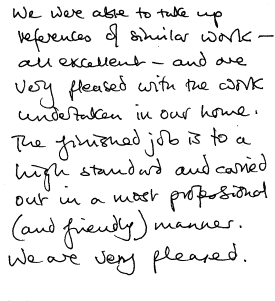 We were able to take up
references of similar work –
all excellent – and are
very pleased with the work
undertaken in our home.
The finished job is to a
high standard and carried
out in a most professional
(and friendly) manner.
We are very pleased.